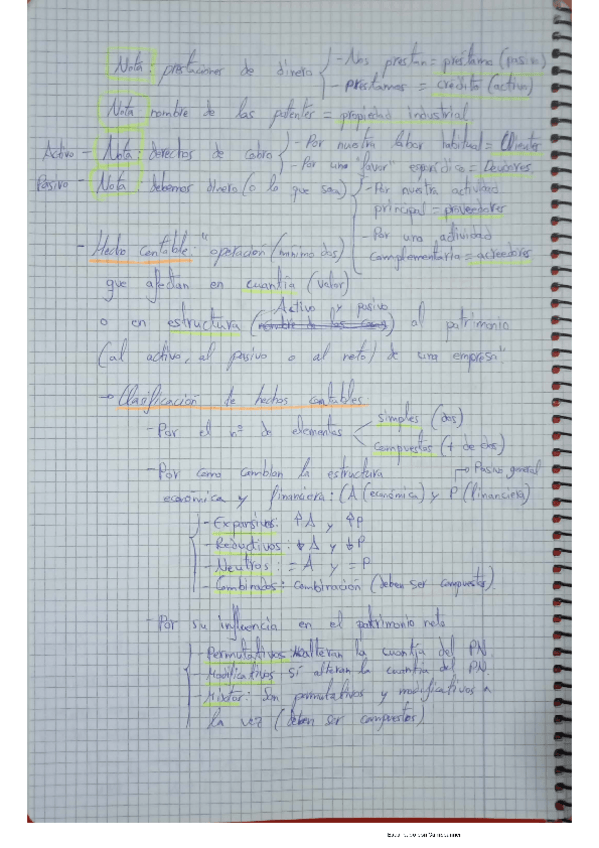 Nota: prestaciones de dinero - Nos prestan = préstamo (pasivo)
- prestamos = crédito (activo)
Nota nombre de las patentes = propiedad industrial
Activo - Nota: derechos de cobro - Por nuestra labor habitual = Clientes
- Por una "favor" esporádico = Deudores
Pasivo - Nota: debemos dinero (o lo que sea) - Por nuestra actividad
principal = proveedores
- Por una actividad
complementaria = acreedores
- Hecho contable: "operación (mínimo dos)
que afectan en cuantía (valor)
Activo y pasivo
o en estructura (nombre de las cosas) al patrimonio
(al activo, al pasivo o al neto) de una empresa"
→ Clasificación de hechos contables:
- Por el nº de elementos simples (dos)
compuestos (+ de dos)
- Por como cambian la estructura → Pasivo general
económica y financiera: (A (económica) y P (financiera)
- Expansivos: ↑A y ↑P
- Reductivos: ↓A y ↓P
- Neutros: = A y = P
- Combinados: combinación (deben ser compuestos).
- Por su influencia en el patrimonio neto
- Permutativos: No alteran la cuantía del PN.
- Modificativos Sí alteran la cuantía del PN.
- Mixtos: Son permutativos y modificativos a
la vez (deben ser compuestos)